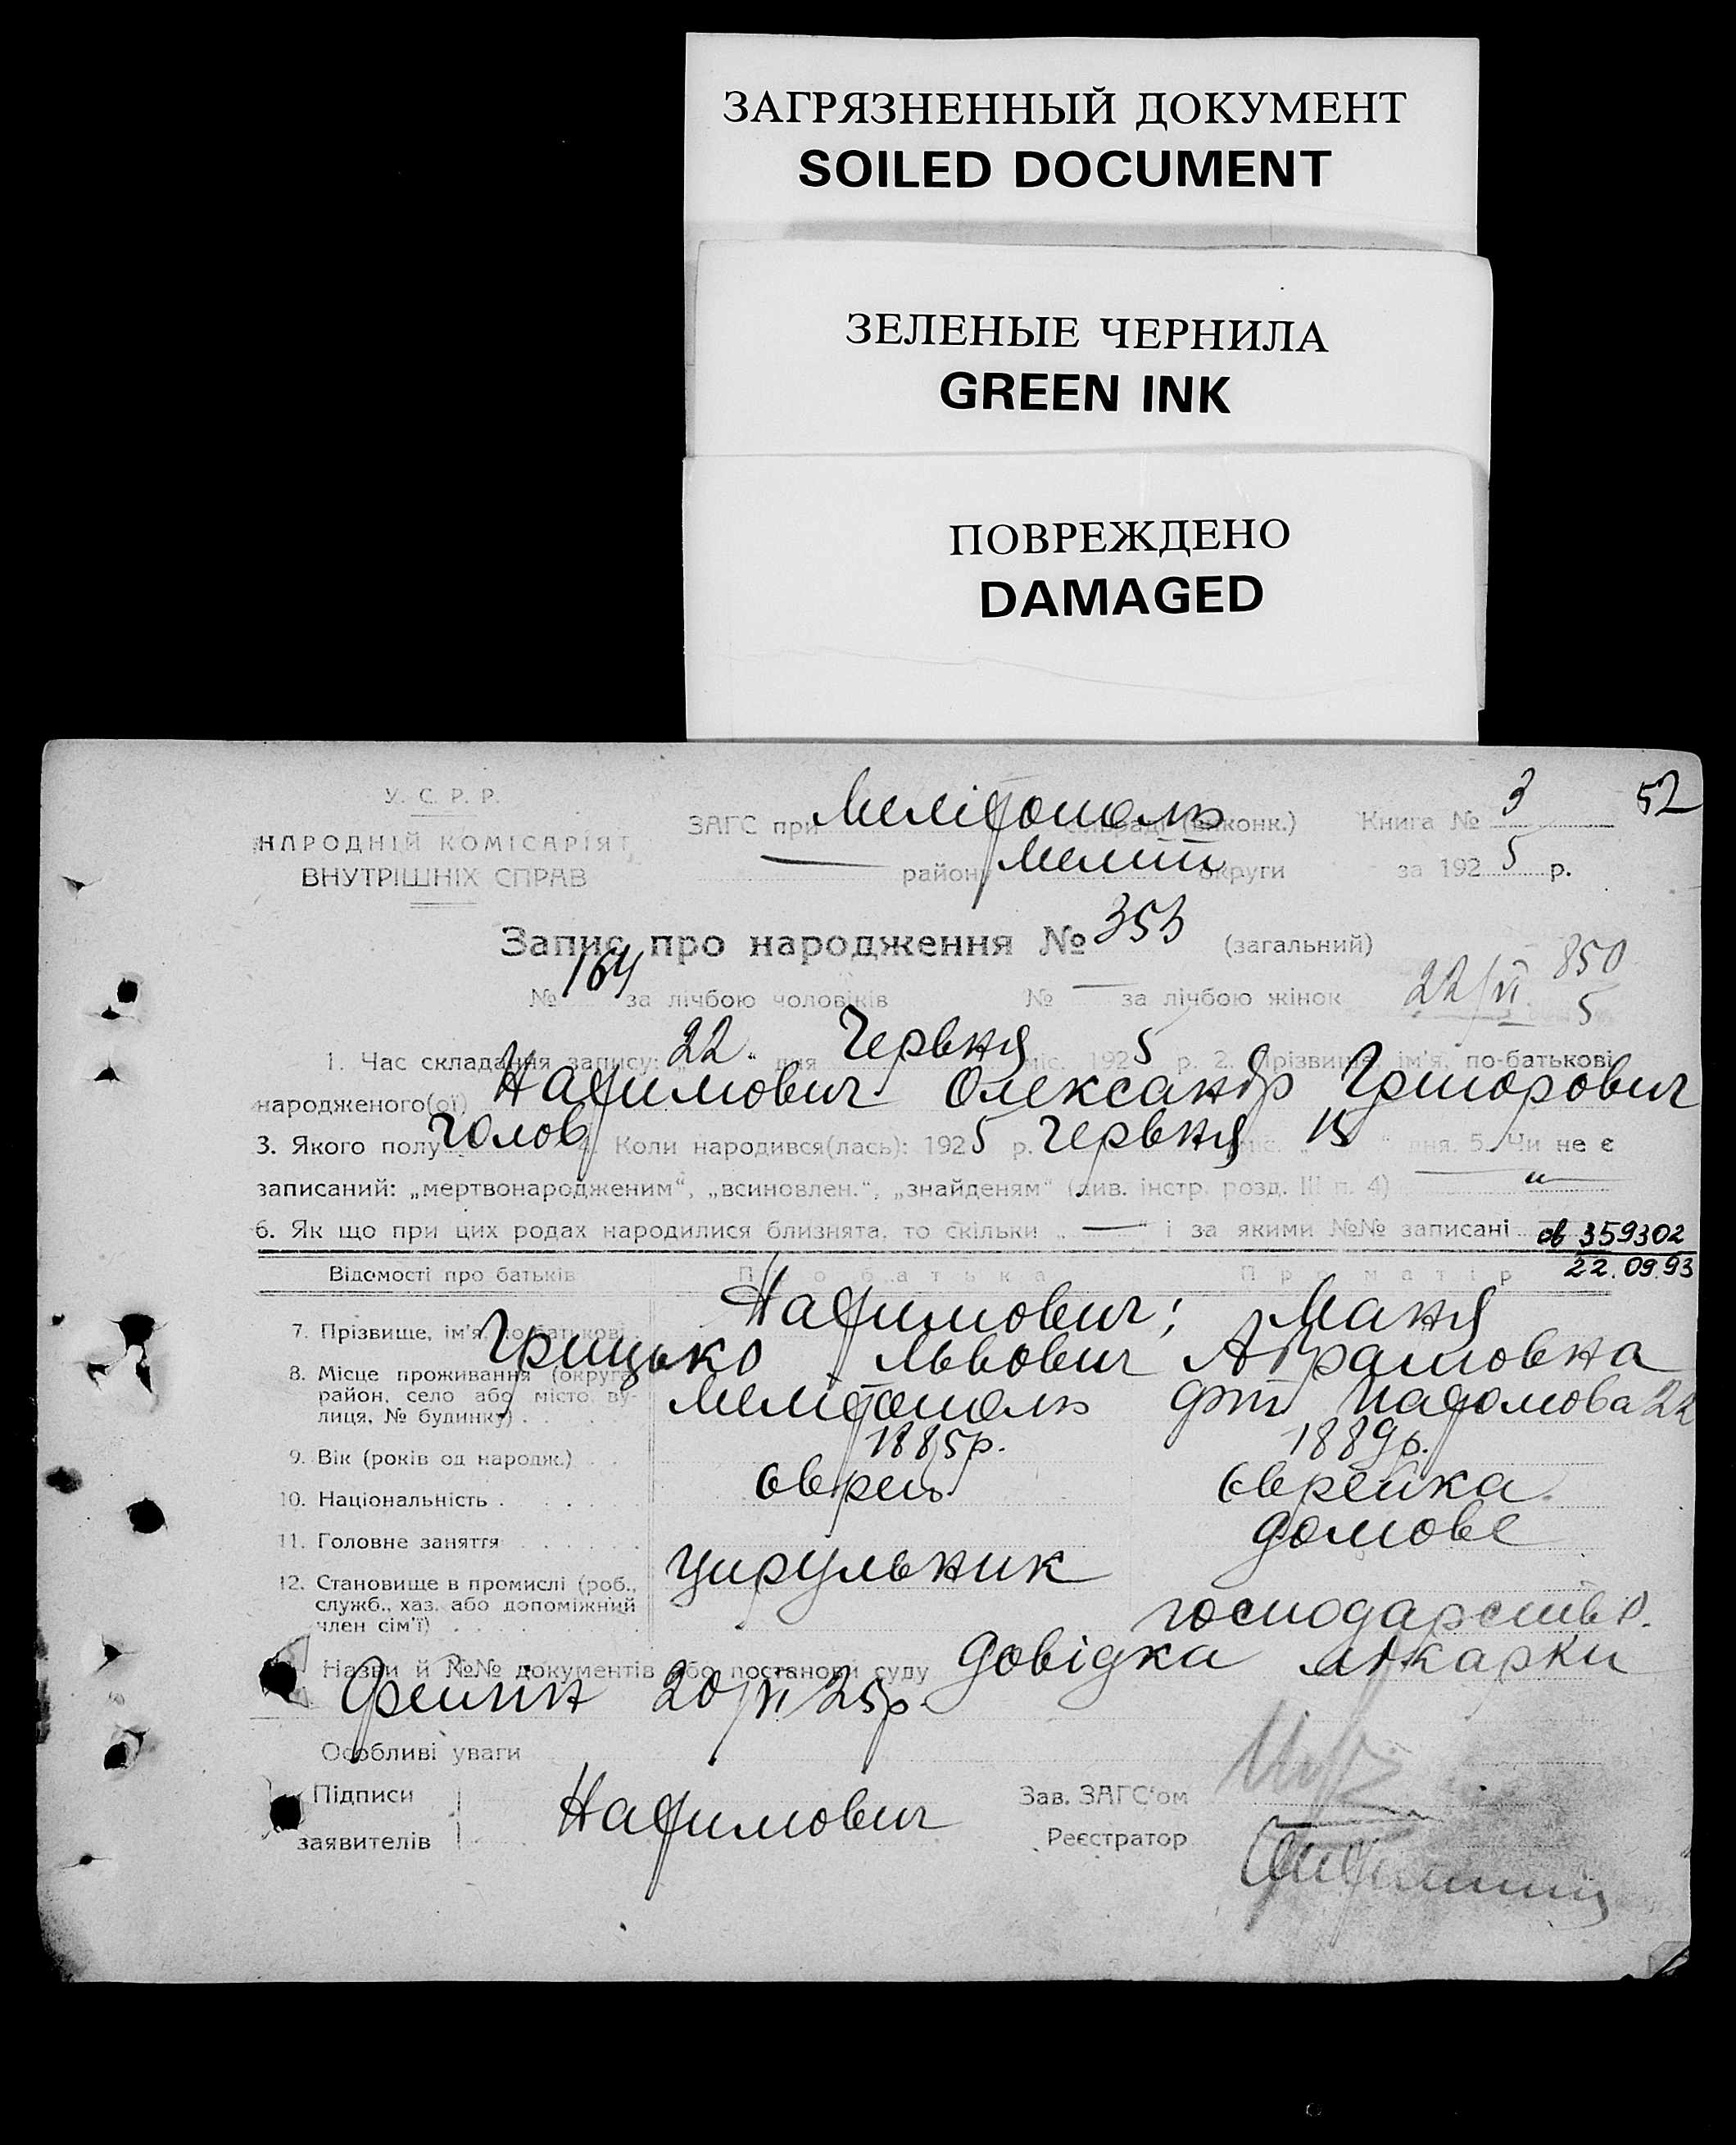 ЗАГРЯЗНЕННЫЙ ДОКУМЕНТ
SOILED DOCUMENT
ЗЕЛЕНЫЕ ЧЕРНИЛА
GREEN INK
ПОВРЕЖДЕНО
DAMAGED
У. С. Р. Р.
НАРОДНІЙ КОМІСАРІЯТ
ВНУТРІШНІХ СПРАВ
ЗАГС при Мелітополь (виконк.) Книга № 3 52
— район Меліт округи за 1925 р.
Запис про народження № 353 (загальний)
№ 164 за лічбою чоловіків № — за лічбою жінок 22/VI 850 5
1. Час складання запису: „22" дня Червня міс. 1925 р. 2. Прізвище, ім'я, по-батькові
народженого(ої) Нафимович Олександр Григорович
3. Якого полу голов 4. Коли народився(лась): 1925 р. Червня міс. „15" дня. 5. Чи не є
записаний: „мертвонародженим", „всиновлен.", „знайденям" (див. інстр. розд. III п. 4) — " —
6. Як що при цих родах народилися близнята, то скільки „ — " і за якими №№ записані
св 359302
22.09.93
Відомості про батьків Про батька Про матір
7. Прізвище, ім'я, по-батькові Нафимович; Маня
Грицько Львович Абрамовна
8. Місце проживання (округа,
район, село або місто, ву-
лиця, № будинку) . Мелітополь 22
9. Вік (років од народж.) . . 1885р. 1889р.
10. Національність . . . . Єврей Єврейка
11. Головне заняття . . . . . домове
цирульник
12. Становище в промислі (роб.,
служб., хаз. або допоміжний
член сім'ї) . . . господарство.
Назви й №№ документів або постанови суду довідка лікарки
20/VI 25р.
Особливі уваги
Підписи
заявителів Нафимович
Зав. ЗАГС'ом
Реєстратор